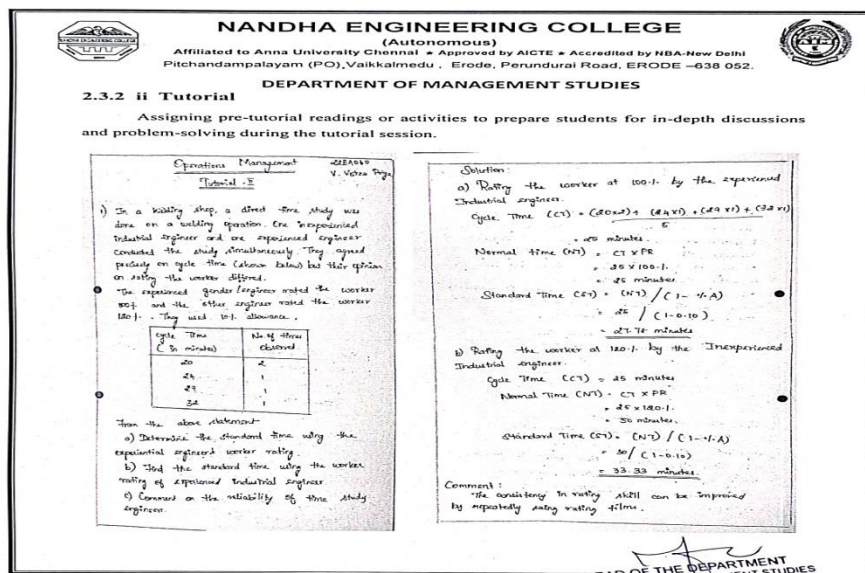 NANDHA ENGINEERING COLLEGE
(Autonomous)
Affiliated to Anna University Chennai ★ Approved by AICTE ★ Accredited by NBA-New Delhi
Pitchandampalayam (PO),Vaikkalmedu , Erode, Perundurai Road, ERODE –638 052.
DEPARTMENT OF MANAGEMENT STUDIES
2.3.2 ii Tutorial
Assigning pre-tutorial readings or activities to prepare students for in-depth discussions
and problem-solving during the tutorial session.
Operations Management
V.
Tutorial - II
1) In a welding shop, a direct time study was
done on a welding operation. One inexperienced
industrial engineer and one experienced engineer
conducted the study simultaneously. They agreed
precisely on cycle time (shown below) but their opinion
on rating the worker differed.
The experienced gender/engineer rated the worker
100% and the other engineer rated the worker
120%. They used 10% allowance.
Cycle Time (in minutes) No. of times observed
20 2
24 1
29 1
32 1
From the above statement
a) Determine the standard time using the
engineer's worker rating.
b) Find the standard time using the worker
rating of experienced industrial engineer
c) Comment on the reliability of time study
engineer.
Solution:
a) Rating the worker at 100% by the experienced
Industrial engineer.
Cycle Time (CT) = (20x2) + (24x1) + (29x1) + (32x1)
5
= 25 minutes.
Normal time (NT) = CT x PR
= 25 x 100%
= 25 minutes
Standard Time (ST) = (NT) / (1 - %A)
= 25 / (1-0.10)
= 27.78 minutes
b) Rating the worker at 120% by the Inexperienced
Industrial engineer.
Cycle Time (CT) = 25 minutes
Normal Time (NT) = CT x PR
= 25 x 120%
= 30 minutes.
Standard Time (ST) = (NT) / (1 - %A)
= 30 / (1-0.10)
= 33.33 minutes.
Comment:
The consistency in rating skill can be improved
by repeatedly using rating films.
HEAD OF THE DEPARTMENT
STUDIES